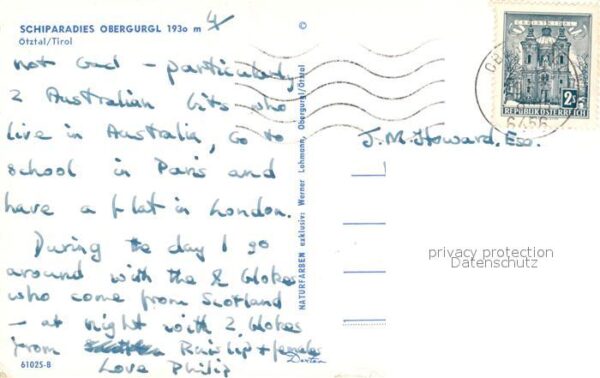 SCHIPARADIES OBERGURGL 1930 m
Ötztal/Tirol
4
©
not bad - particularly
2 Australian bits who
live in Australia, go to
school in Paris and
have a flat in London.
During the day I go
around with the 2 blokes
who come from Scotland
- at night with 2 blokes
from Ruislip + females
Love Philip
61025-B
NATURFARBEN exklusiv: Werner Lohmann, Obergurgl/Ötztal
CHRISTKINDL
2S
REPUBLIK ÖSTERREICH
6456
J.M. Howard, Esq.
privacy protection
Datenschutz